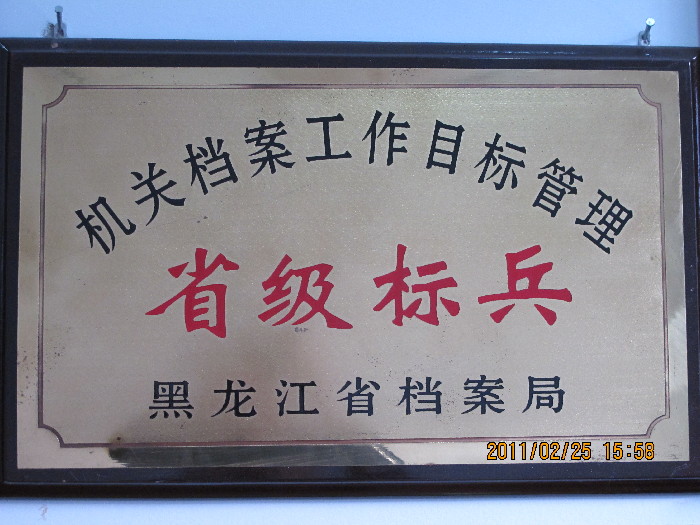 机关档案工作目标管理
省级标兵
黑龙江省档案局
2011/02/25 15:58